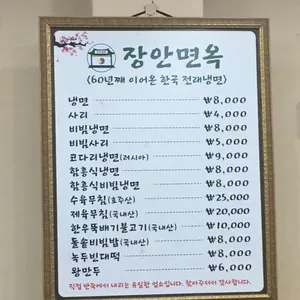 장안면옥
(60년째 이어온 한국 전래냉면)
냉면 ₩8,000
사리 ₩4,000
비빔냉면 ₩8,000
비빔사리 ₩5,000
코다리냉면(러시아) ₩9,000
함흥식냉면 ₩8,000
함흥식비빔냉면 ₩8,000
수육무침(호주산) ₩25,000
제육무침(국내산) ₩20,000
한우뚝배기불고기(국내산) ₩10,000
돌솥비빔밥(국내산) ₩8,000
녹두빈대떡 ₩8,000
왕만두 ₩6,000
직접 반죽에서 내리는 유일한 업소입니다. 찾아주셔서 감사합니다.